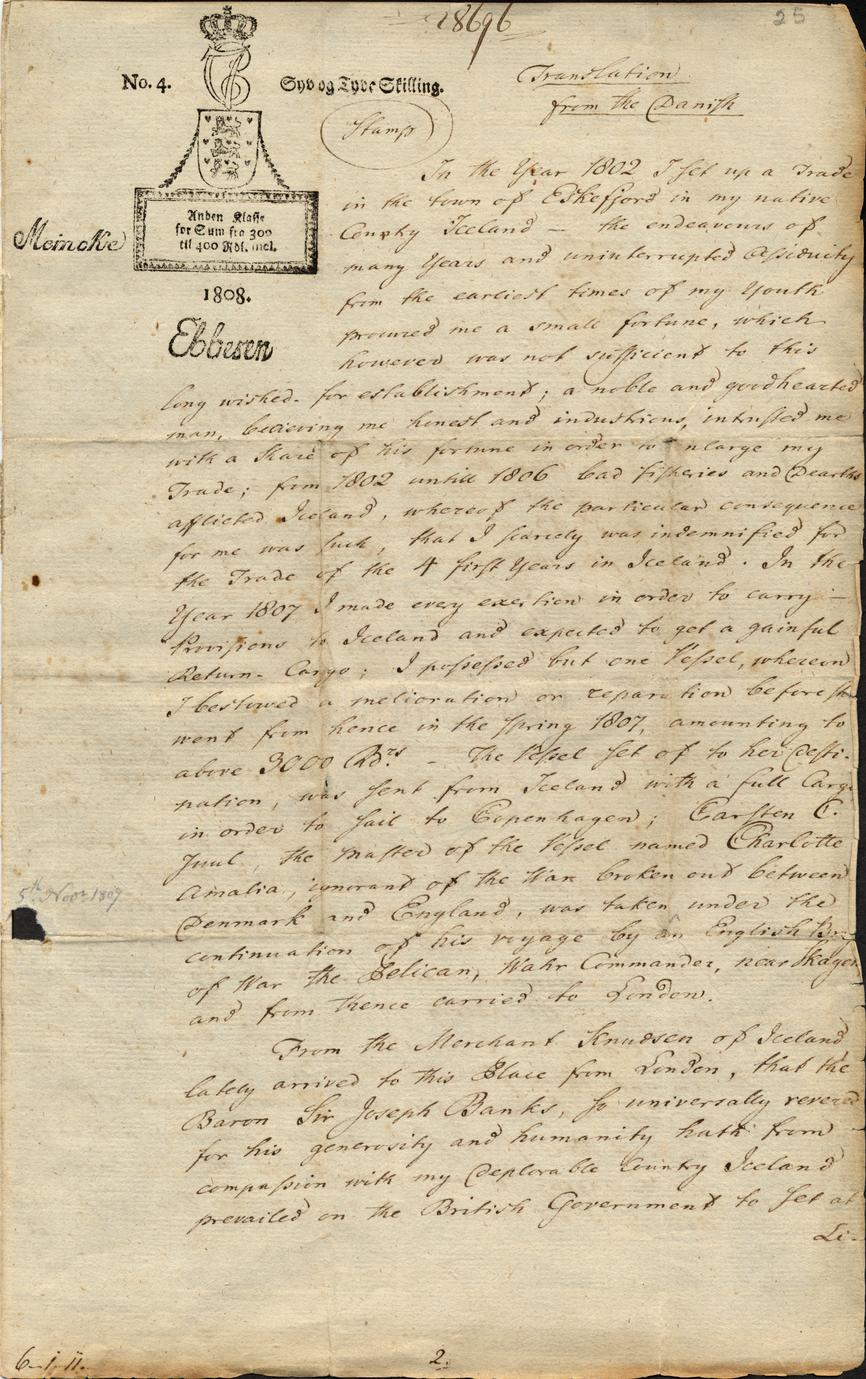 18696
25
No. 4.
Syv og Tyve Skilling.
Translation
from the Danish
Stamp
Anden Klasse
for Sum fra 300
til 400 Rdl. incl.
Meincke
1808.
Ebbesen
In the Year 1802 I set up a Trade
in the town of Eskefjord in my native
Country Iceland — the endeavours of
many Years and uninterrupted Assiduity
from the earliest times of my Youth
procured me a small fortune, which
however was not sufficient to this
long wished-for establishment; a noble and goodhearted
man, believing me honest and industrious, intrusted me
with a Share of his fortune in order to nlarge my
Trade; from 1802 untill 1806 bad fisheries and Dearths
afflicted Iceland, whereof the particular consequence
for me was such, that I scarcely was indemnified for
the Trade of the 4 first Years in Iceland. In the
Year 1807 I made every exertion in order to carry —
Provisions to Iceland and expected to get a gainful
Return-Cargo; I possessed but one Vessel, whereon
I bestowed a melioration or reparation before she
went from hence in the Spring 1807, amounting to
above 3000 Rdrs — The Vessel set of to her Desti-
nation, was sent from Iceland with a full Cargo
in order to sail to Copenhagen; Carsten C.
Juul, the Master of the Vessel named Charlotte
Amalia, ignorant of the War broken out between
Denmark and England, was taken under the
continuation of his voyage by an English Brig
of War the Pelican, Wahr Commander, near Skagen
and from thence carried to London.
5th Novr 1807
From the Merchant Knudsen of Iceland
lately arrived to this Place from London, that the
Baron Sir Joseph Banks, so universally revered
for his generosity and humanity hath from
compassion with my Deplorable Country Iceland
prevailed on the British Government to set at
Li-
2.